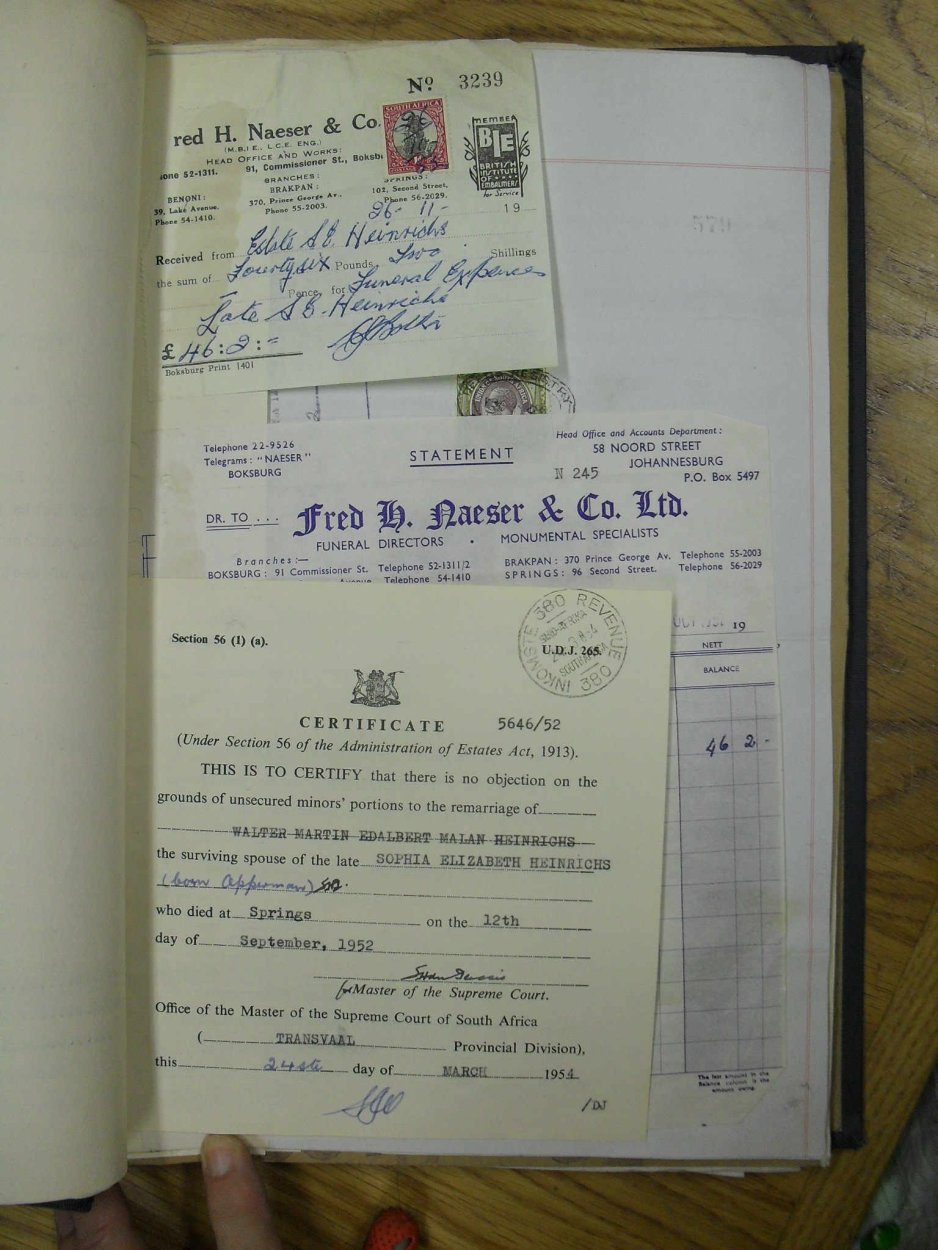 Nº 3239
red H. Naeser & Co.
(M.B.I.E., L.C.E. ENG.)
HEAD OFFICE AND WORKS:
one 52-1311. 91, Commissioner St., Boksb
BRANCHES:
BENONI: BRAKPAN: SPRINGS:
39, Lake Avenue. 370, Prince George Av., 102, Second Street,
Phone 54-1410. Phone 55-2003. Phone 56-2029.
SOUTH AFRICA
MEMBER
BIE
BRITISH
INSTITUTE
OF
EMBALMERS
for Service
26-11- 19
Received from Estate S E Heinrichs
the sum of Fourtysix Pounds, Two Shillings
Pence, for Funeral Expences
Late S E Heinrichs
£ 46:2:-
Boksburg Print 1401
579
Telephone 22-9526
Telegrams: "NAESER"
BOKSBURG
STATEMENT
Head Office and Accounts Department:
58 NOORD STREET
JOHANNESBURG
P.O. Box 5497
N 245
DR. TO ... Fred H. Naeser & Co. Ltd.
FUNERAL DIRECTORS • MONUMENTAL SPECIALISTS
Branches:—
BOKSBURG: 91 Commissioner St. Telephone 52-1311/2
Avenue Telephone 54-1410
BRAKPAN: 370 Prince George Av. Telephone 55-2003
SPRINGS: 96 Second Street. Telephone 56-2029
19
NETT
BALANCE
46 2 -
The last amount in the
Balance column is the
amount owing.
Section 56 (1) (a).
380 REVENUE
INKOMSTE 380
SOUTH AFRICA
U.D.J. 265.
CERTIFICATE 5646/52
(Under Section 56 of the Administration of Estates Act, 1913).
THIS IS TO CERTIFY that there is no objection on the
grounds of unsecured minors' portions to the remarriage of
WALTER MARTIN EDALBERT MALAN HEINRICHS
the surviving spouse of the late SOPHIA ELIZABETH HEINRICHS
(born Opperman)
who died at Springs on the 12th
day of September, 1952
for Master of the Supreme Court.
Office of the Master of the Supreme Court of South Africa
(TRANSVAAL Provincial Division),
this 24ste day of MARCH 1954
/DJ